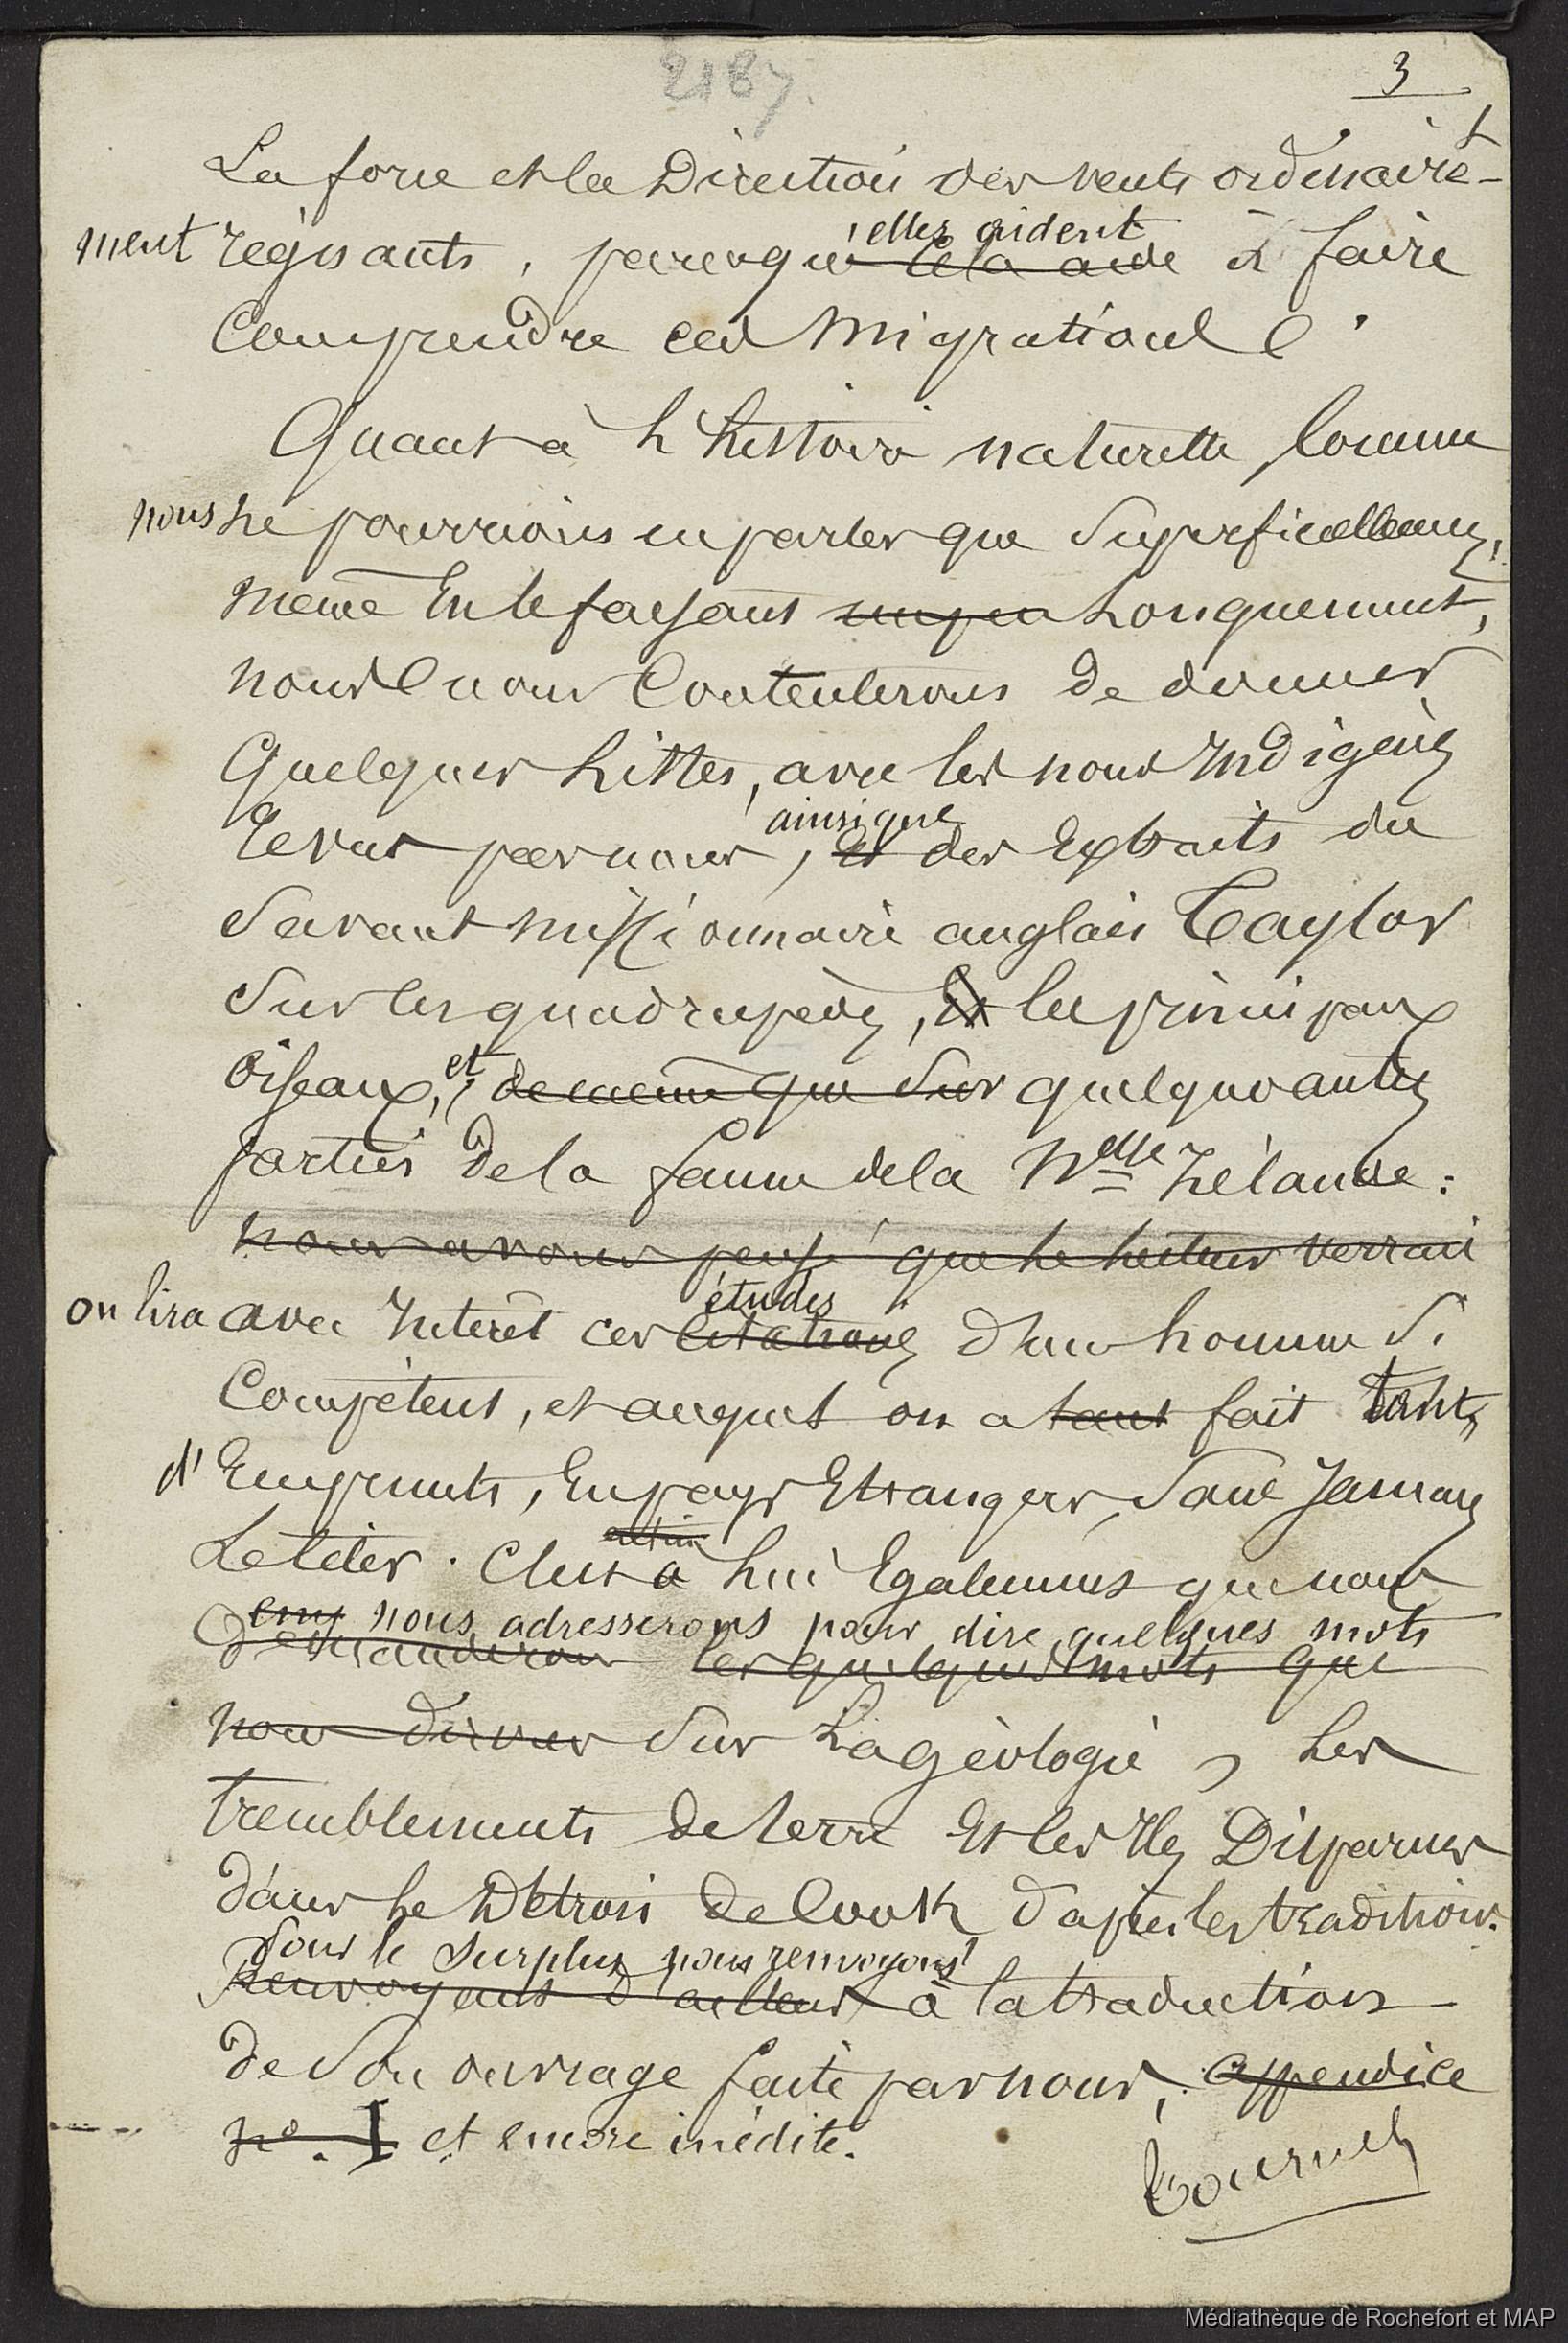 2187.
3
La force et la Direction des vents ordinaire-
ment régnants, parcequ'elles aident cela aide à faire
Comprendre ces migrations.
Quant à l'histoire naturelle, Comme
nous ne pourrions en parler que Superficiellement,
même En le faisant un peu Longuement,
nous nous Contenterons de donner
Quelques listes, avec les noms Indigènes
revus par nous, ainsi que et des Extraits du
Savant missionnaire anglais Taylor
Sur les quadrupèdes, Et les principaux
oiseaux, et de même que Sur quelques autres
parties de la faune de la Nelle Zélande :
nous avons pensé que le lecteur verrait
on lira avec Intérêt ces études citations d'un homme Si
Compétent, et auquel on a tant fait tant
d'Emprunts, En pays Etrangers, Sans Jamais
Le Citer. C'est à lui Egalement que nous
nous adresserons pour dire quelques mots
demanderons les quelques mots que
nous dirons Sur La géologie, Les
tremblements de terre Et les Iles Disparues
dans le Détroit de Cook d'après les traditions.
Pour le Surplus nous renvoyons
Renvoyant d'ailleurs à la traduction
de Son ouvrage faite par nous, appendice
no. I et encore inédite.
Tournez
Médiathèque de Rochefort et MAP